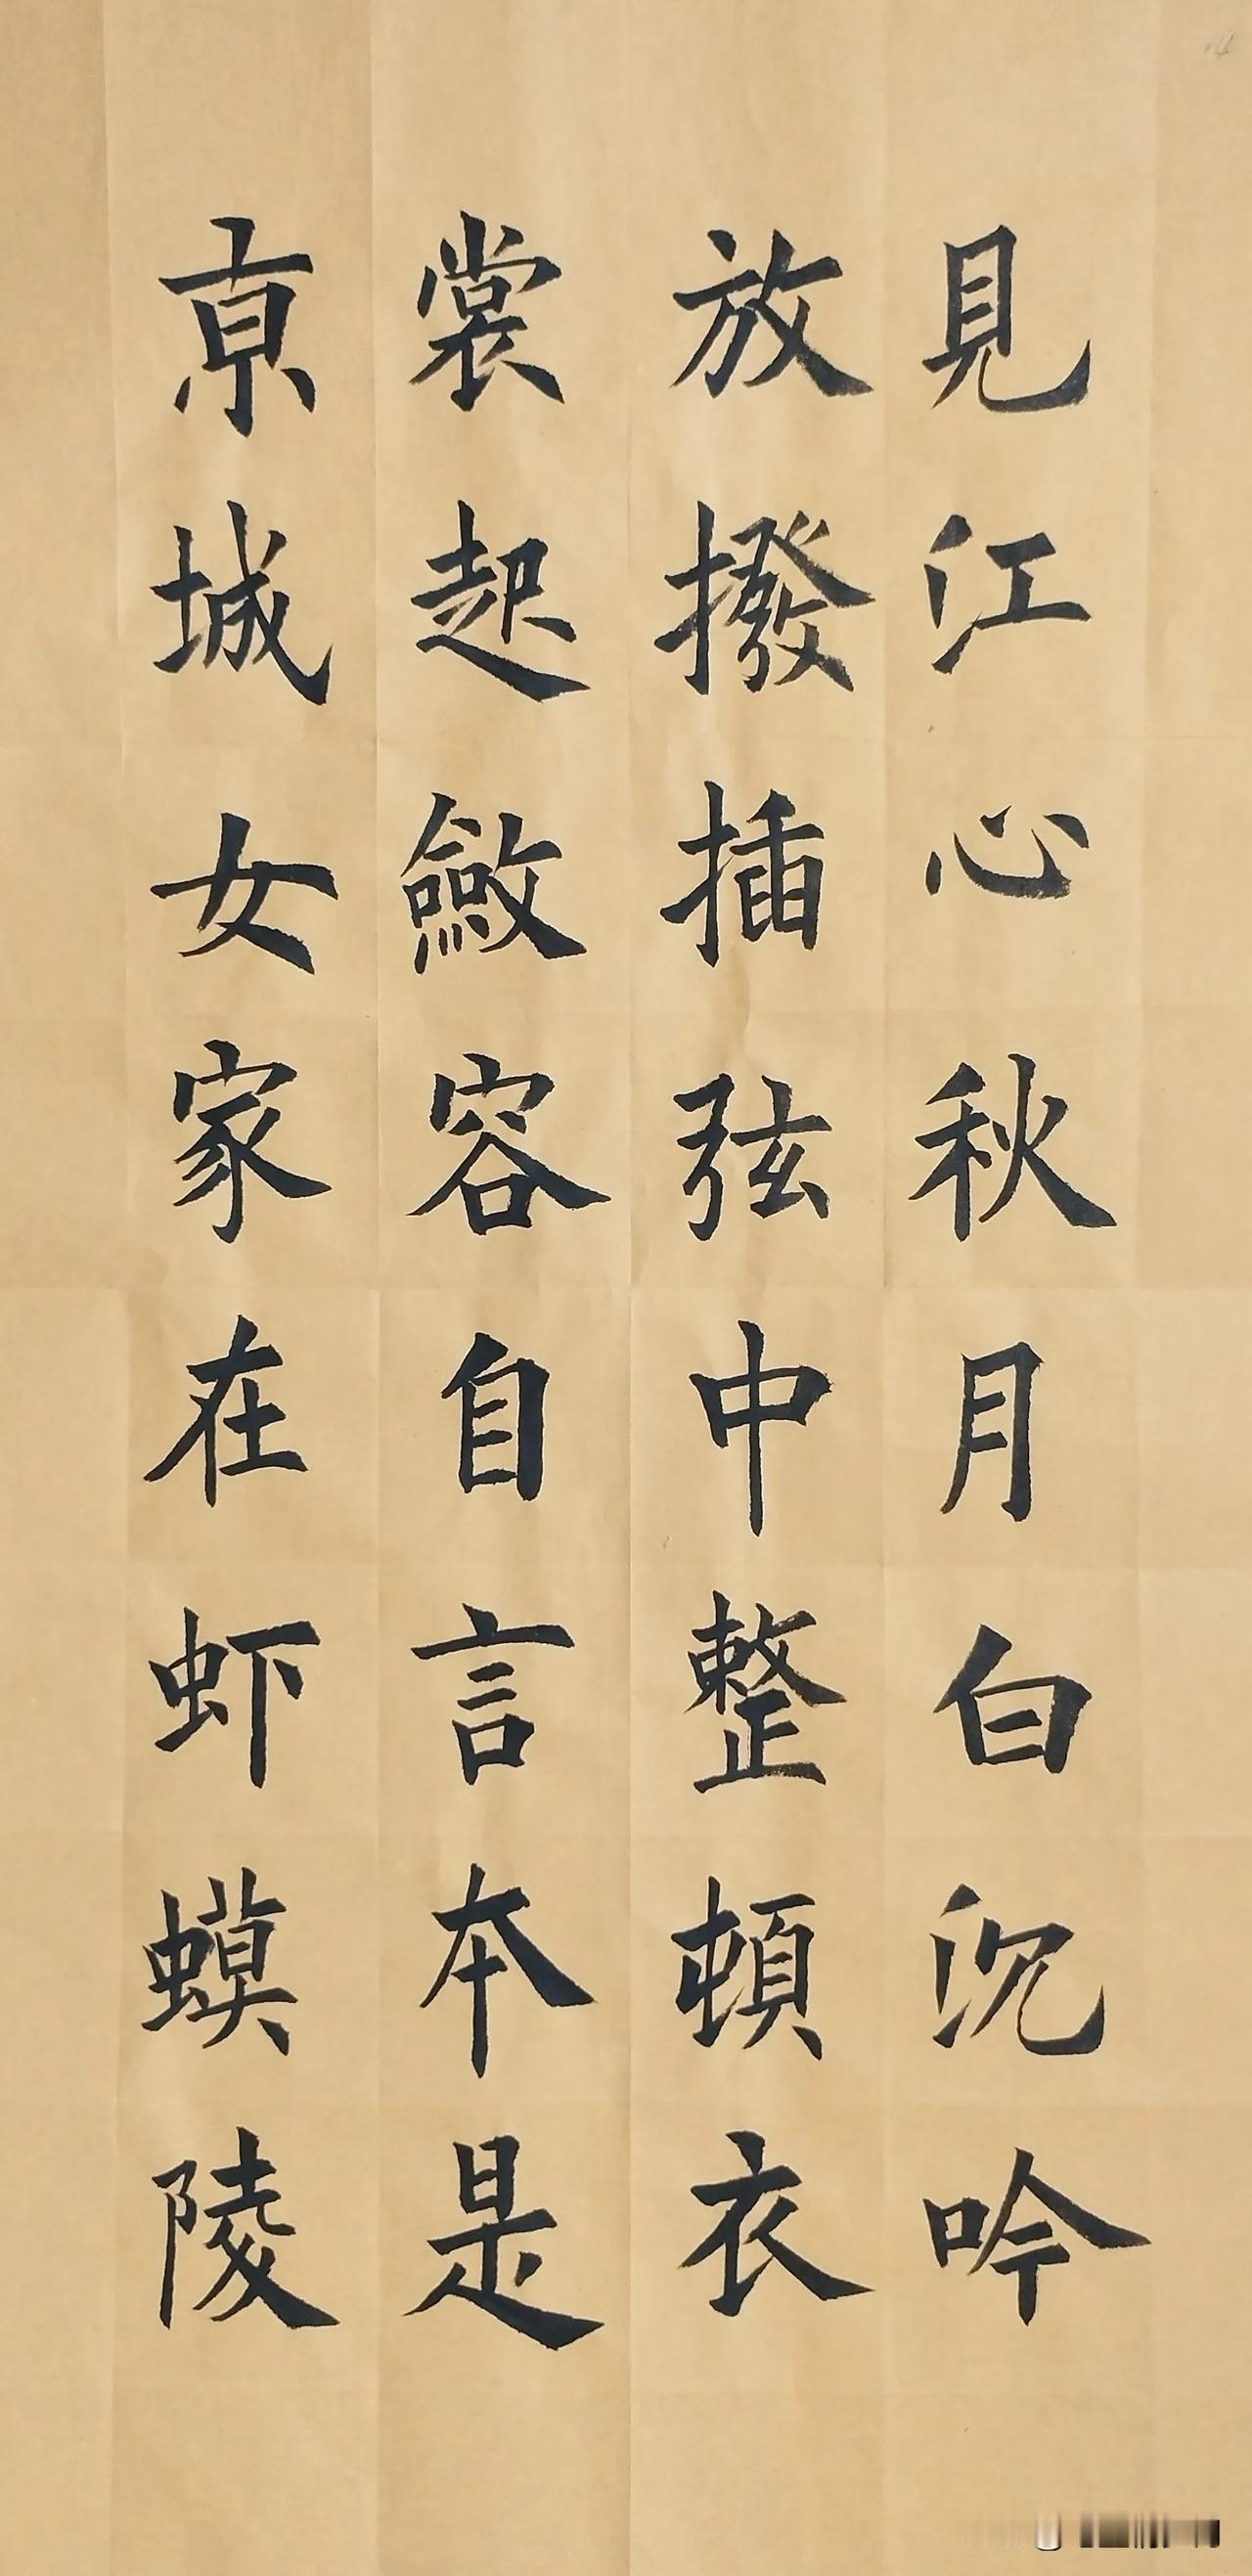 見江心秋月白沉吟
放撥插弦中整頓衣
裳起斂容自言本是
京城女家在虾蟆陵